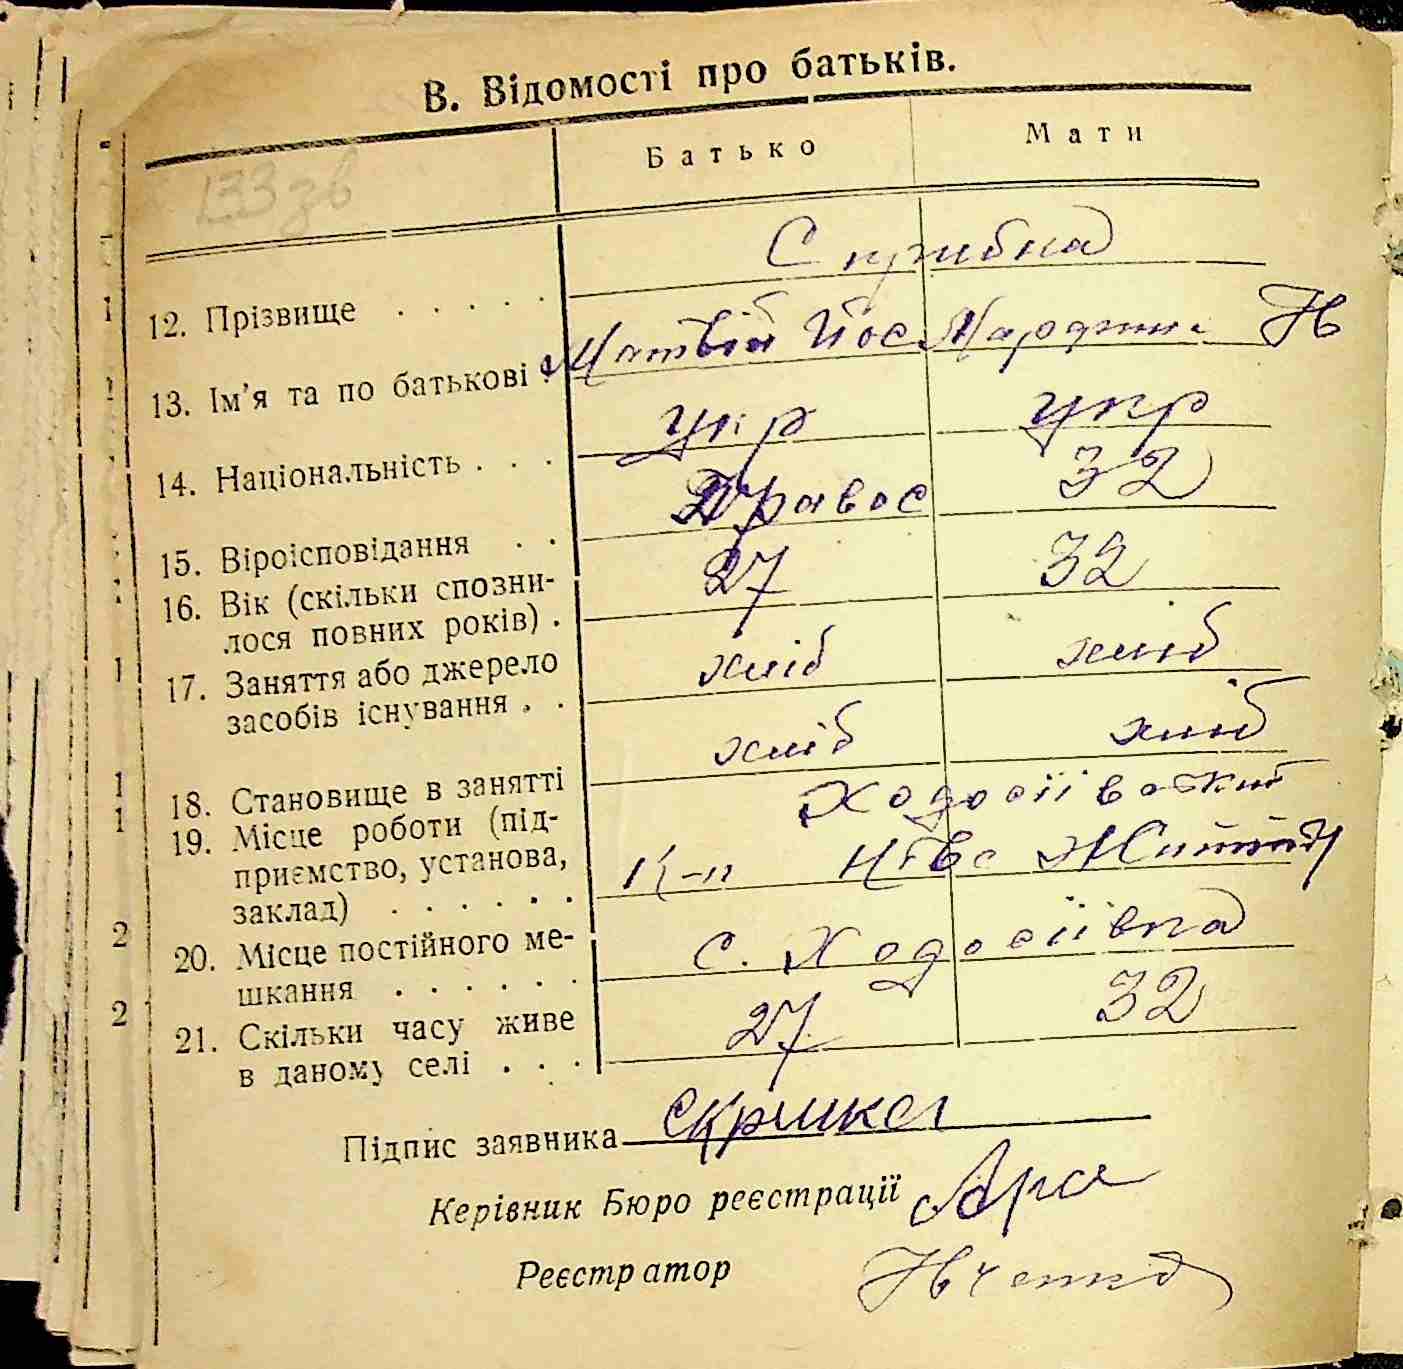 В. Відомості про батьків.
Батько Мати
133 зв
12. Прізвище . . . . .
13. Ім'я та по батькові . Матвій Йос
14. Національність . . . укр укр
15. Віроісповідання . . Правос 32
16. Вік (скільки спозни-
лося повних років) . 27 32
17. Заняття або джерело
засобів існування . . хліб хліб
18. Становище в занятті хліб хліб
19. Місце роботи (під-
приємство, установа,
заклад) . . . . . .
20. Місце постійного ме-
шкання . . . . . . с. Ходосіівка
21. Скільки часу живе
в даному селі . . . 27 32
Підпис заявника
Керівник Бюро реєстрації
Реєстратор
1
1
1
1
2
2